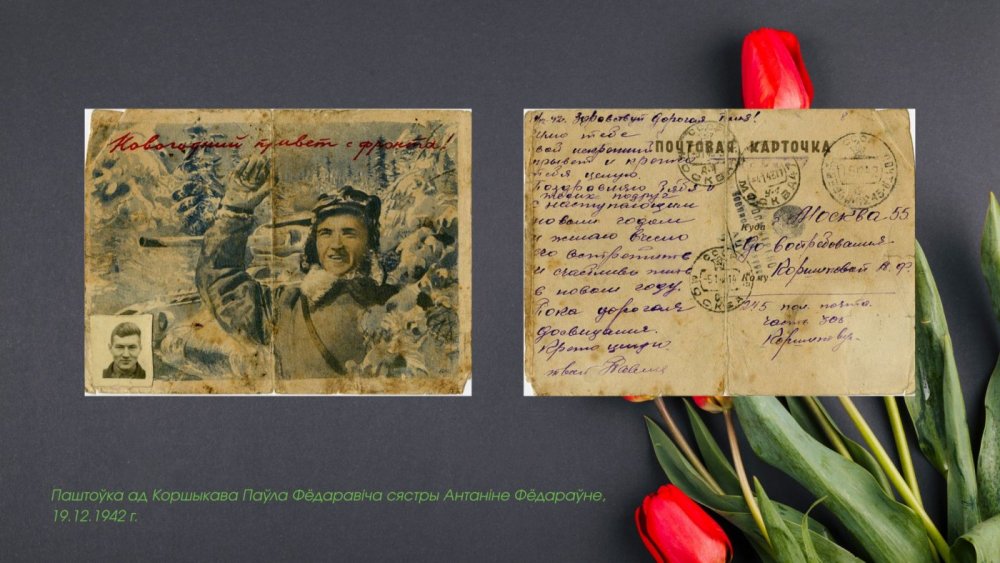 Новогодний привет с фронта!
Здравствуй дорогая Тоня!
Шлю тебе
свой искренний
привет и крепко
тебя целую.
Поздравляю тебя и
твоих подруг
с наступающим
новым годом
и желаю весело
его встретить
и счастливо жить
в новом году.
Пока дорогая
досвидания.
Крепко целую
твой Павел
ПОЧТОВАЯ КАРТОЧКА
Куда
г. Москва-55
До востребования
Кому
Коршиковой А. Ф.
245 пол. почта
часть 705
Коршиков
Паштоўка ад Коршыкава Паўла Фёдаравіча сястры Антаніне Фёдараўне,
19.12.1942 г.